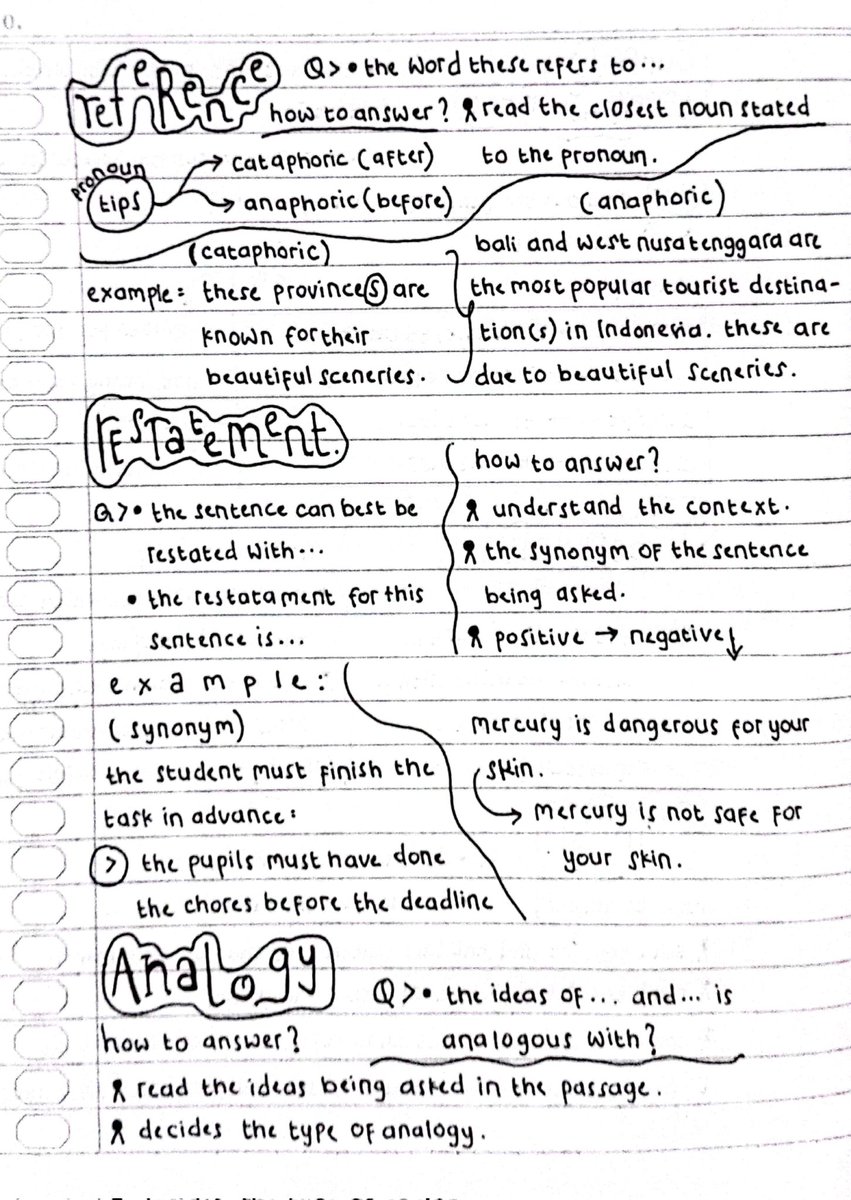 0.
refeRence
Q> • the word these refers to...
how to answer? read the closest noun stated
to the pronoun.
pronoun
tips
cataphoric (after)
anaphoric (before)
(cataphoric)
example: these province(s) are
known for their
beautiful sceneries.
(anaphoric)
bali and west nusa tenggara are
the most popular tourist destina-
tion(s) in Indonesia. these are
due to beautiful sceneries.
rEsTatement.
Q> • the sentence can best be
restated with...
• the restatament for this
sentence is...
how to answer?
understand the context.
the synonym of the sentence
being asked.
positive → negative
example:
(synonym)
the student must finish the
task in advance:
> the pupils must have done
the chores before the deadline
mercury is dangerous for your
skin.
mercury is not safe for
your skin.
Analogy
Q> • the ideas of... and... is
analogous with?
how to answer?
read the ideas being asked in the passage.
decides the type of analogy.